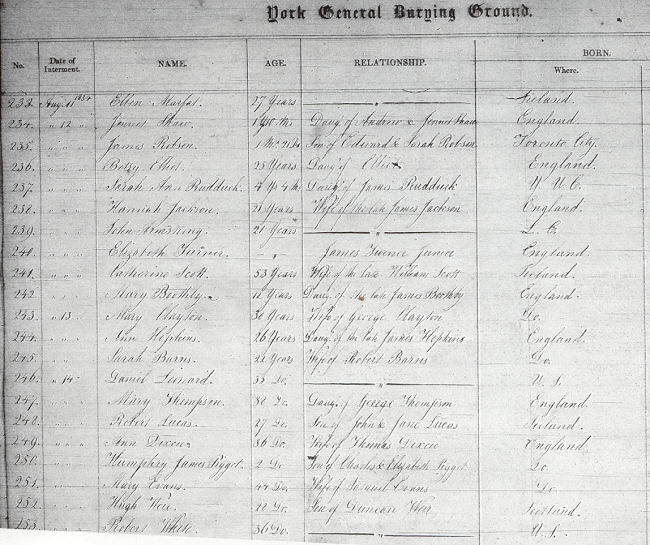 York General Burying Ground.
No. Date of Interment. NAME. AGE. RELATIONSHIP. BORN. Where.
233. Aug. 11 1834 Ellen 27 Years — " — Ireland.
234. " 12 " Jennet Shaw. Daug. of Andrew & Jennet Shaw England.
235. " " " James Robson. Son of Edward & Sarah Robson Toronto City.
236. " " " Betsy 25 Years Daug. of England.
237. " " " Sarah Ann Rudduck. Daug. of James Rudduck Y. U. C.
238. " " " Hannah Jackson. 21 Years Wife of the late James Jackson England.
239. " " " John Armstrong. 21 Years — " — L. C.
240. " " " Elizabeth Turner. — " . James Turner Junior England.
241. " " " Catherine Scott. 53 Years Wife of the late William Scott Ireland.
242. " " " Mary Boothby. 12 Years Daug. of the late James Boothby England.
243. " 13 " Mary Clayton. 30 Years Wife of George Clayton Do.
244. " " " Ann Hopkins. 26 Years Daug. of the late James Hopkins England.
245. " " " Sarah Barns. 22 Years Wife of Robert Barns Do.
246. " 14 " Daniel Leonard. Do. — " — U. S.
247. " " " Mary Thompson. Do. Daug. of George Thompson England.
248. " " " Robert Lucas. 27 Do. Son of John & Jane Lucas Ireland.
249. " " " Ann Dixcie. 36 Do. Wife of Thomas Dixcie England.
250. " " " Humphry James Pygot. 2 Do. Son of Charles & Elizabeth Pygot Do.
251. " " " Mary Evans. 44 Do. Wife of Samuel Evans Do.
252. " " " Hugh Weir. Do. Son of Duncan Weir Scotland.
253. " " " Robert White. 36 Do. — " — U. S.